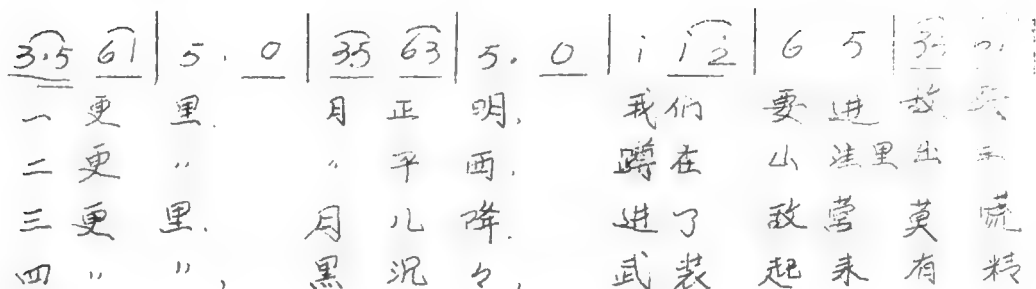 3.5 61 | 5. 0 | 35 63 | 5. 0 | i i 2 | 6 5 |
一更里. 月正明, 我们要进敌
二更 〃 〃 平西. 蹲在山洼里出主
三更里. 月儿降. 进了敌营莫慌
四 〃 〃, 黑沉々, 武装起来有精